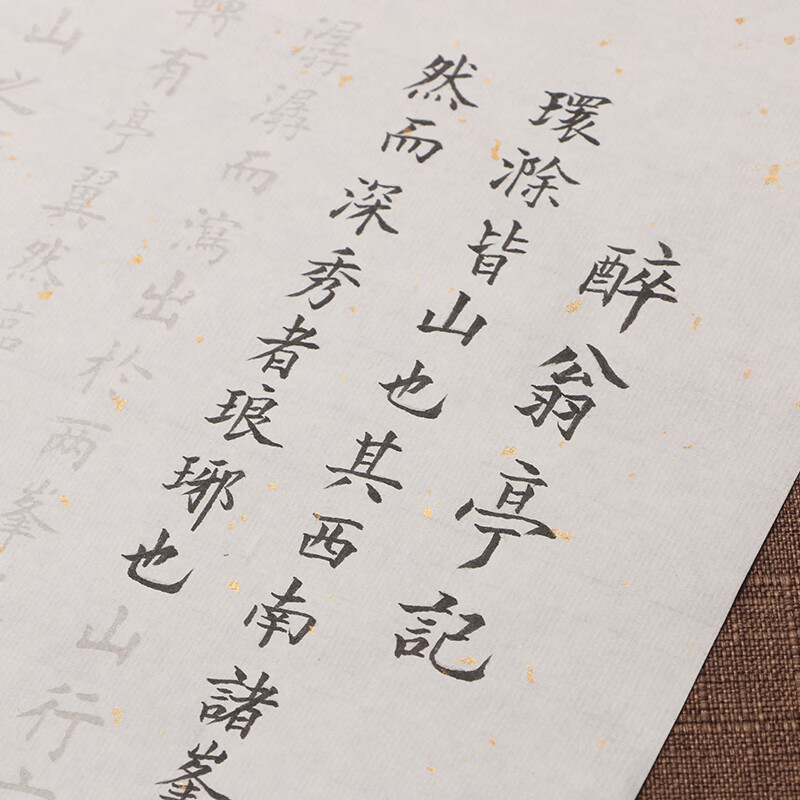 醉翁亭記
環滁皆山也其西南諸峯
然而深秀者琅琊也山行
潺潺而瀉出於兩峯
轉有亭翼然臨
山之